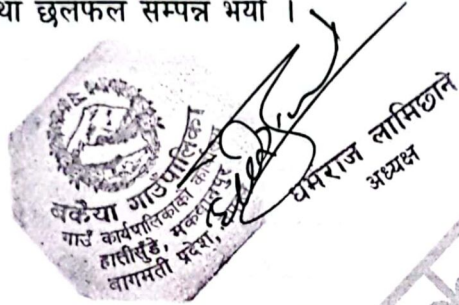 था छलफल सम्पन्न भयो ।
बकैया गाउँपालिका
गाउँ कार्यपालिकाको कार्यालय
हात्तीसुँडे, मकवानपुर
बागमती प्रदेश,
धर्मराज लामिछाने
अध्यक्ष